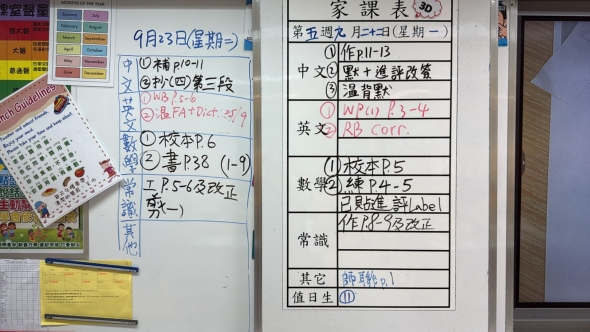 MONTHS OF THE YEAR
January
July
February
August
March
September
April
October
May
November
June
December
大聲
普通聲
Lunch Guidelines
9月23日(星期二)
中文
① 補p.10-11
② 抄(四)第三段
英文
① WB P.5-6
② 溫FA+Dict. 25/9
數學
① 校本P.6
② 書P.38 (1-9)
常識
工P.5-6及改正
剪(一)
其他
家課表 3D
第五週九月二十二日(星期一)
中文
① 作p.11-13
② 默+進評改簽
③ 溫背默
英文
① WP(1) P.3-4
② RB corr.
數學
① 校本P.5
② 練P.4-5
已貼進評Label
常識
作P.8-9及改正
其它
師聯p.1
值日生
⑪